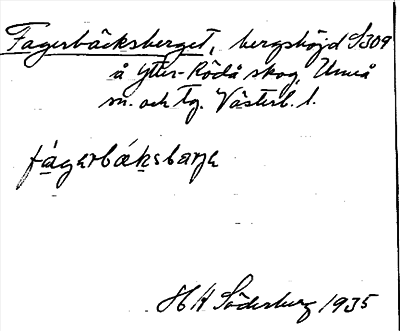 Fagerbäcksberget, bergshöjd S309
å Ytter-Rödå skog, Umeå
sn. och tg. Västerb. l.
fágerbäksbarje
H H Söderberg 1935